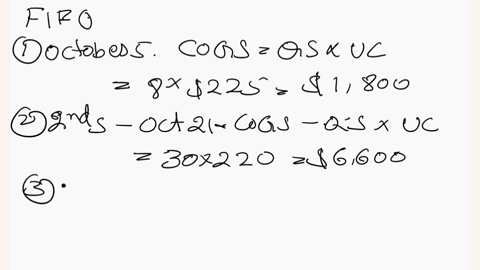 FIFO
① October 5. COGS = QS X UC
= 8 x $225 = $1,800
② 2nd s - Oct 21 - COGS - QS x UC
= 30 x 220 = $6,600
③